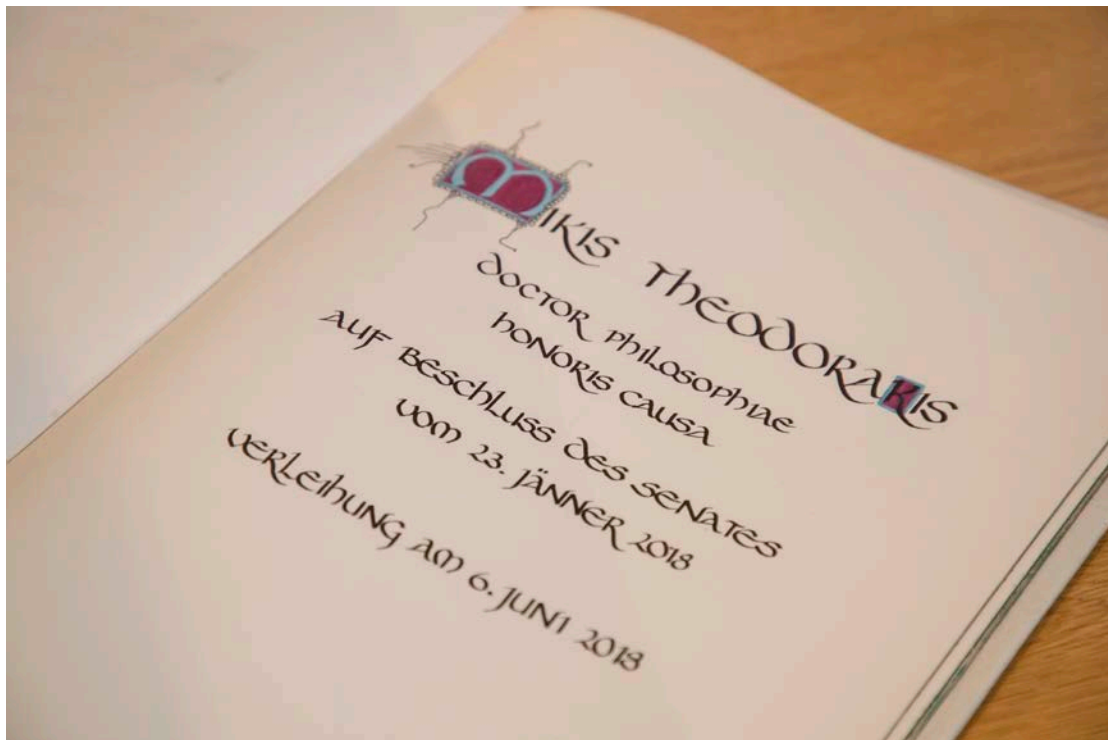 MIKIS THEODORAKIS
DOCTOR PHILOSOPHIAE
HONORIS CAUSA
AUF BESCHLUSS DES SENATES
VOM 23. JÄNNER 2018
VERLEIHUNG AM 6. JUNI 2018